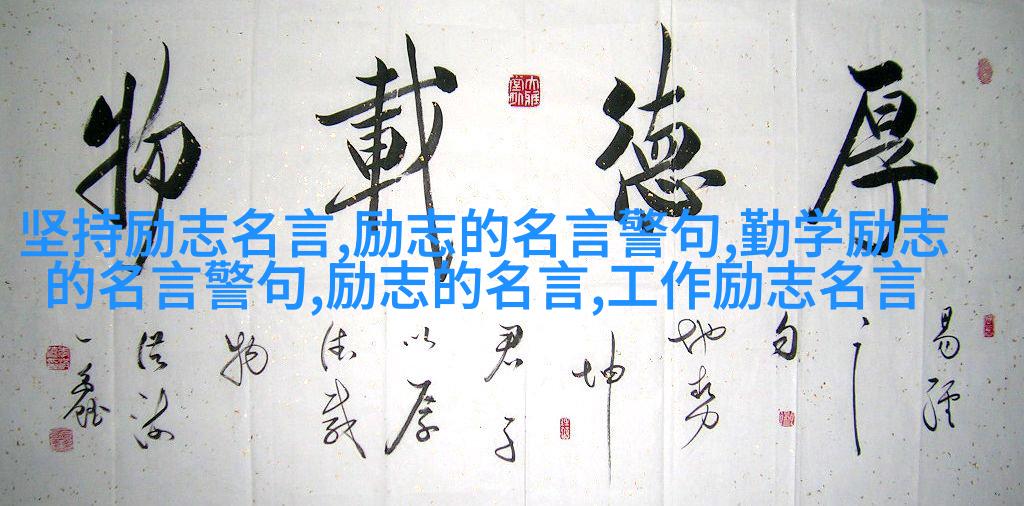 厚德載物
坚持励志名言,励志的名言警句,勤学励志
的名言警句,励志的名言,工作励志名言
易經
之
句
地勢
坤
君子
以厚
德載
物